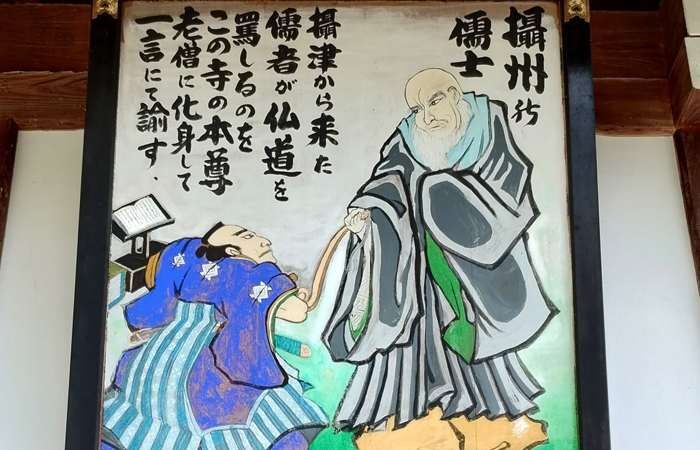 攝州
儒士
攝津から来た
儒者が仏道を
罵しるのを
この寺の本尊
老僧に化身して
一言にて諭す.